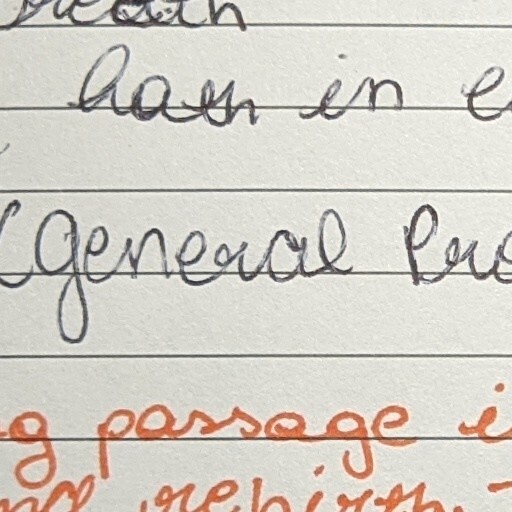 breath
hath in e
(general Pro
g passage i
nd rebirth.